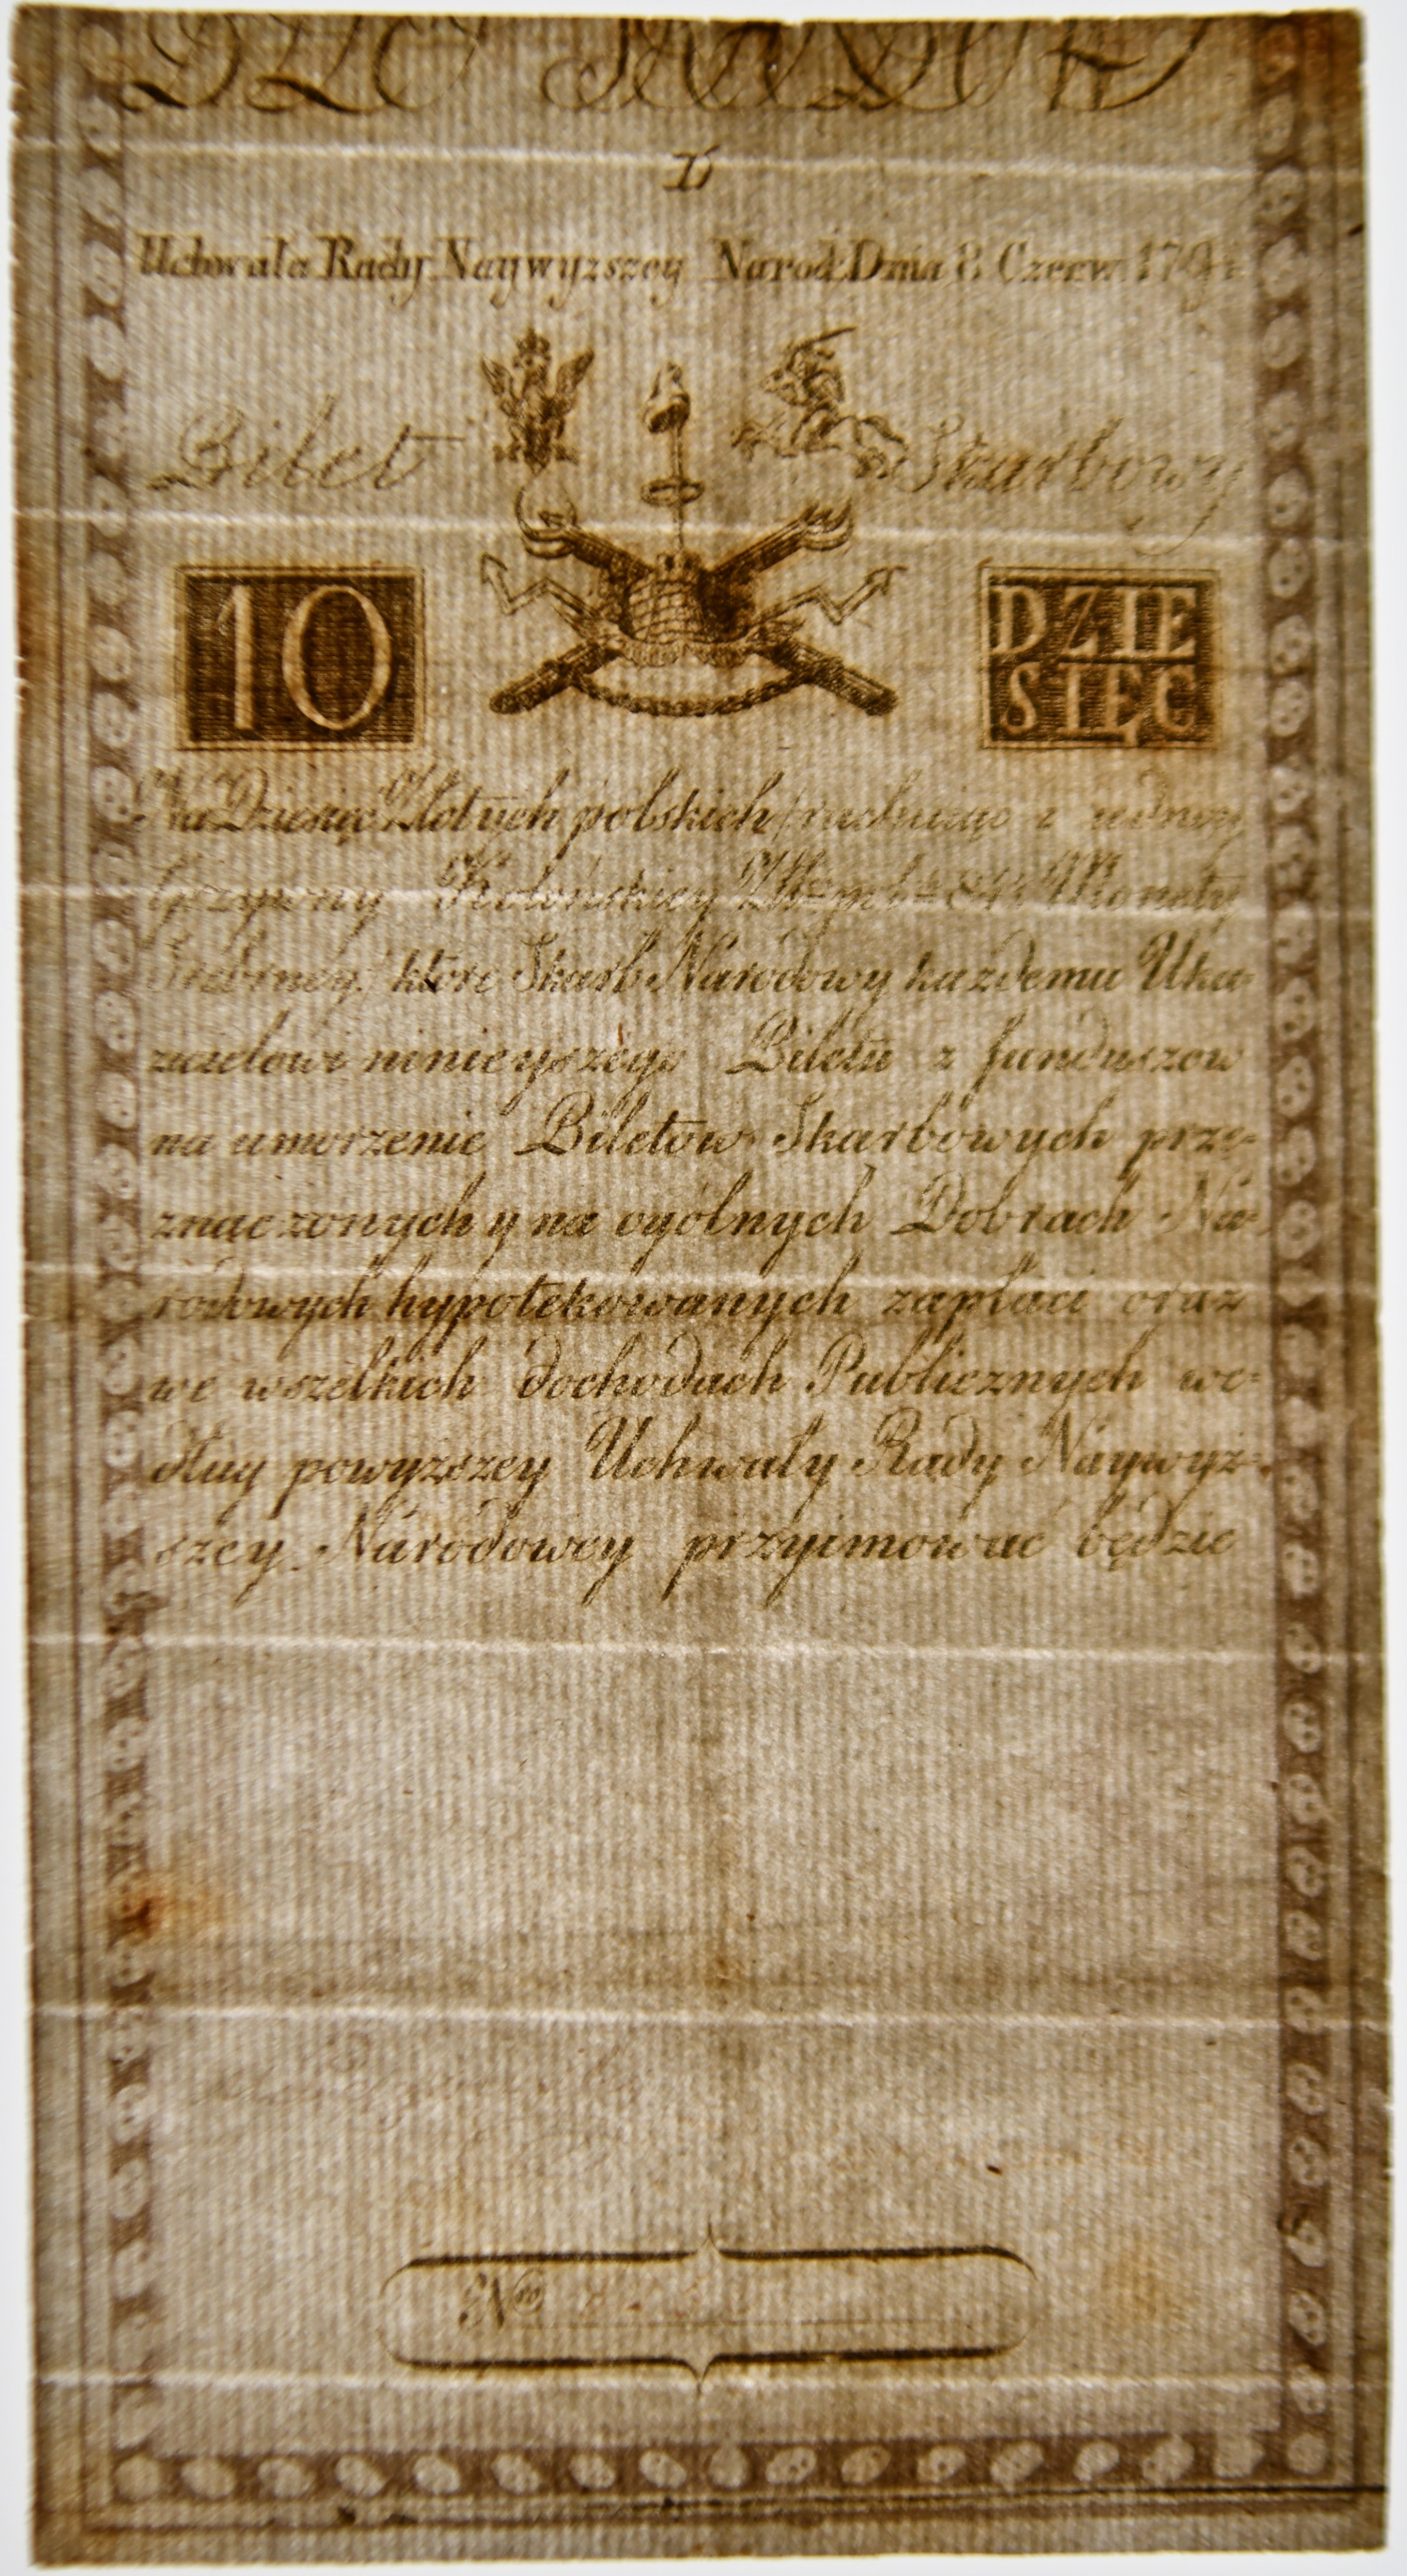 D
Uchwała Rady Naywyzszey Narod: Dnia 8 Czerw: 1794
Bilet Skarbowy
10
DZIE
SIĘC
Na Dziesięc Złotych polskich rachuiąc z iedney
Grzywny Kolońskiey Monety
Srebrney, ktore Skarb Narodowy kazdemu Uka=
zicielowi ninieyszego Biletu z funduszow
na umorzenie Biletow Skarbowych prze=
znaczonych y na ogólnych Dobrach Na=
rodowych hypotekowanych zapłaci oraz
we wszelkich dochodach Publicznych we=
dług powyzszey Uchwały Rady Naywyz=
szey Narodowey przyimować będzie
Nro